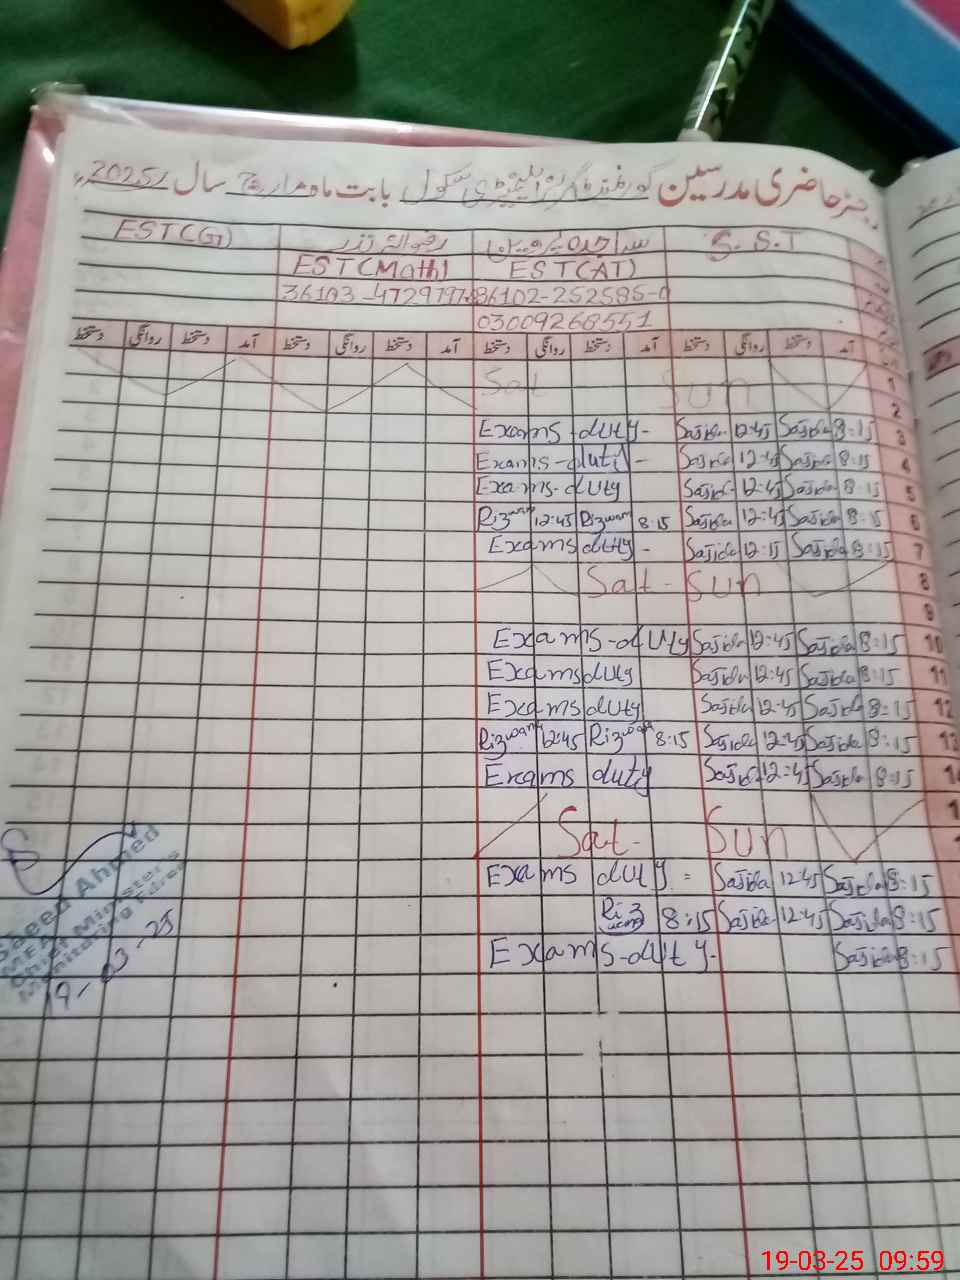 رجسٹر حاضری مدرسین گورنمنٹ گرلز ایلیمنٹری سکول بابت ماہ مارچ سال 2025ء
EST(G) رضوانہ نذر ساجدہ پروین S.S.T
EST(Math) EST(AT)
36103-4729797-8 36102-252585-0
03009268551
آمد دستخط روانگی دستخط آمد دستخط روانگی دستخط آمد دستخط روانگی دستخط آمد دستخط روانگی دستخط
Sat Sun 1
2
Exams duty- Sajida 12:45 Sajida 8:15 3
Exams-duty- Sajida 12:45 Sajida 8:15 4
Exams-duty Sajida 12:45 Sajida 8:15 5
Rizwana 12:45 Rizwana 8:15 Sajida 12:45 Sajida 8:15 6
Exams duty- Sajida 12:15 Sajida 8:15 7
Sat- Sun 8
9
Exams-duty Sajida 12:45 Sajida 8:15 10
Exams duty Sajida 12:45 Sajida 8:15 11
Exams duty Sajida 12:45 Sajida 8:15 12
Rizwana 12:45 Rizwana 8:15 Sajida 12:45 Sajida 8:15 13
Exams duty Sajida 12:45 Sajida 8:15 14
Sat- Sun
Exams duty = Sajida 12:45 Sajida 8:15
Rizwana 8:15 Sajida 12:45 Sajida 8:15
Exams-duty- Sajida 8:15
Saeed Ahmed
MEA
Chief Minister's
Monitoring Force
19-03-25
19-03-25 09:59